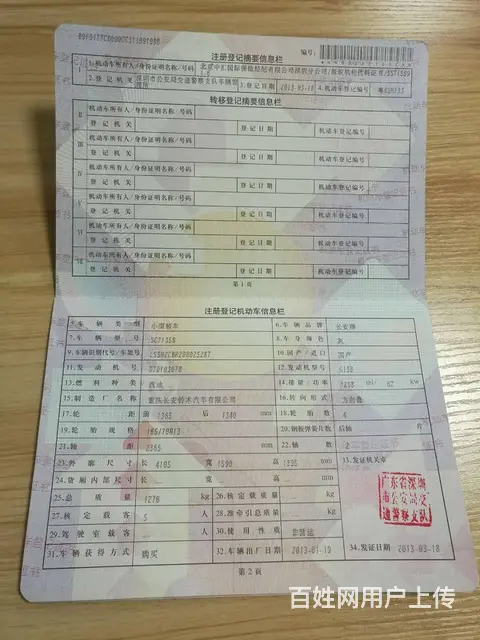 注册登记摘要信息栏
编号:
1.机动车所有人/身份证明名称/号码
2.登记机关 深圳市公安局交通警察支队车辆管理所 3.登记日期 2013-03-18 4.机动车登记编号
转移登记摘要信息栏
II 机动车所有人/身份证明名称/号码
登记机关 登记日期 机动车登记编号
III 机动车所有人/身份证明名称/号码
登记机关 登记日期 机动车登记编号
IV 机动车所有人/身份证明名称/号码
登记机关 登记日期 机动车登记编号
V 机动车所有人/身份证明名称/号码
登记机关 登记日期 机动车登记编号
VI 机动车所有人/身份证明名称/号码
登记机关 登记日期 机动车登记编号
VII 机动车所有人/身份证明名称/号码
登记机关 登记日期 机动车登记编号
第1页
注册登记机动车信息栏
5.车辆类型 小型轿车 6.车辆品牌 长安牌
7.车辆型号 8.车身颜色 灰
9.车辆识别代号/车架号 10.国产/进口 国产
11.发动机号 12.发动机型号
13.燃料种类 汽油 14.排量/功率 ml/ kw
15.制造厂名称 重庆长安铃木汽车有限公司 16.转向形式 方向盘
17.轮距 前 1365 后 1340 mm 18.轮胎数 4
19.轮胎规格 165/70R13 20.钢板弹簧片数 后轴 片
21.轴距 2365 mm 22.轴数 2
23.外廓尺寸 长 4105 宽 1590 高 mm
24.货厢内部尺寸 长 宽 高 mm
25.总质量 1276 kg 26.核定载质量 kg
27.核定载客 5 人 28.准牵引总质量 kg
29.驾驶室载客 人 30.使用性质 非营运
31.车辆获得方式 购买 32.车辆出厂日期 2013-01-19
33.发证机关章
广东省深圳市公安局交通警察支队
34.发证日期 2013-03-18
第2页
百姓网用户上传